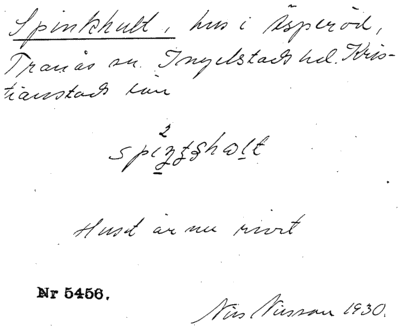 Spinkhult, hus i Äsperöd,
Tranås sn. Ingelstads hd. Kris-
tianstads län
Huset är nu rivet
Nr 5456.
Nils Nilsson 1930.